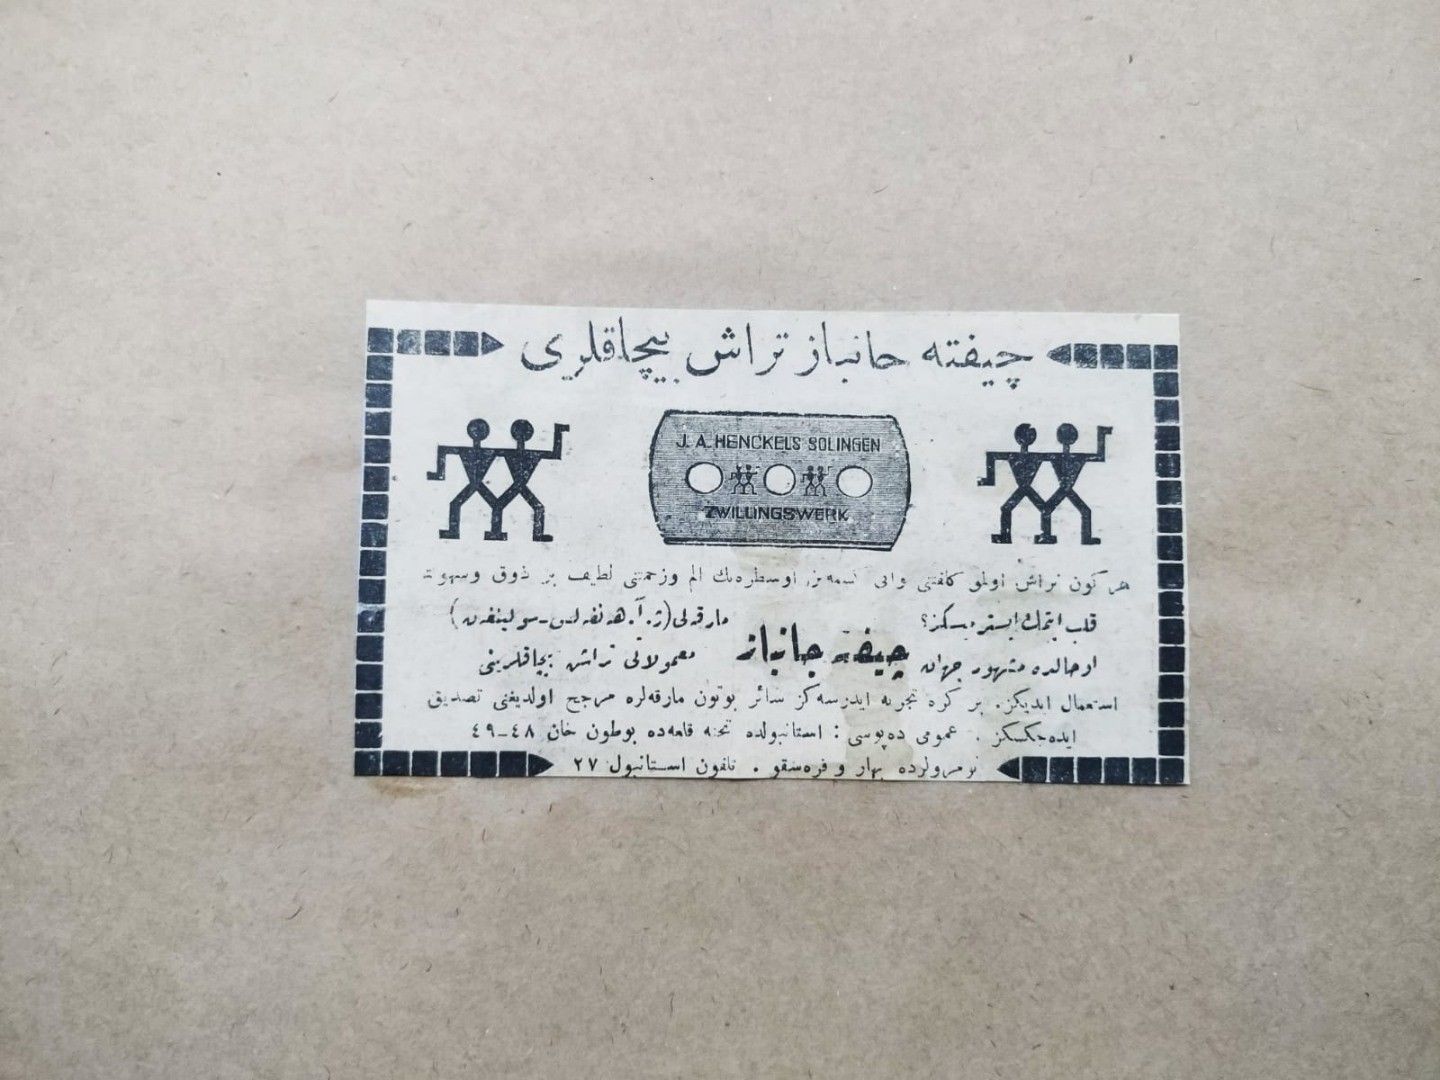 چيفته جانباز تراش بيچاقلرى
J. A. HENCKELS SOLINGEN
ZWILLINGSWERK
هر كون تراش اولمق كلفتنى والى اوسطره‌نك الم وزحمتنى لطيف بر ذوق وسهولته
قلب ايتمك ايسترميسكز؟
مارقه‌لى (ژ. آ. هه‌نقه‌لس-سولينغه‌ن)
او حالده مشهور جهان چيفته جانباز معمولاتى تراش بيچاقلرينى
استعمال ايديكز. بر كره تجربه ايدرسه‌كز سائر بوتون مارقه‌لره مرجح اولديغنى تصديق
ايده‌جكسكز. عمومى ده‌پوسى : استانبولده تخته قلعه‌ده بوطون خان ٤٨-٤٩
نومرولرده بهار و فره‌سقو . تلفون استانبول ٢٧